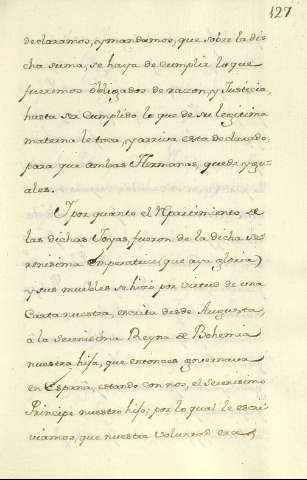 127
declaramos, y mandamos, que sobre la di=
cha suma, se haya de cumplir lo que
fueremos obligados de razon, y Justicia,
hasta ser Cumplido lo que de su legitima
materna le toca, y arriva esta declarado,
para que ambas Hermanas, queden ygu=
ales.
Y por quanto el Repartimiento, de
las dichas Joyas, fueron de la dicha Se=
renisima Emperatriz (que aya gloria)
y sus muebles se hizo por virtud de una
Carta nuestra, escrita desde Augusta,
â la Serenisima Reyna de Bohemia
nuestra hija, que entonces governava
en España, estando con nos, el Serenisimo
Principe nuestro hijo; por lo qual le escri=
viamos, que nuestra voluntad era